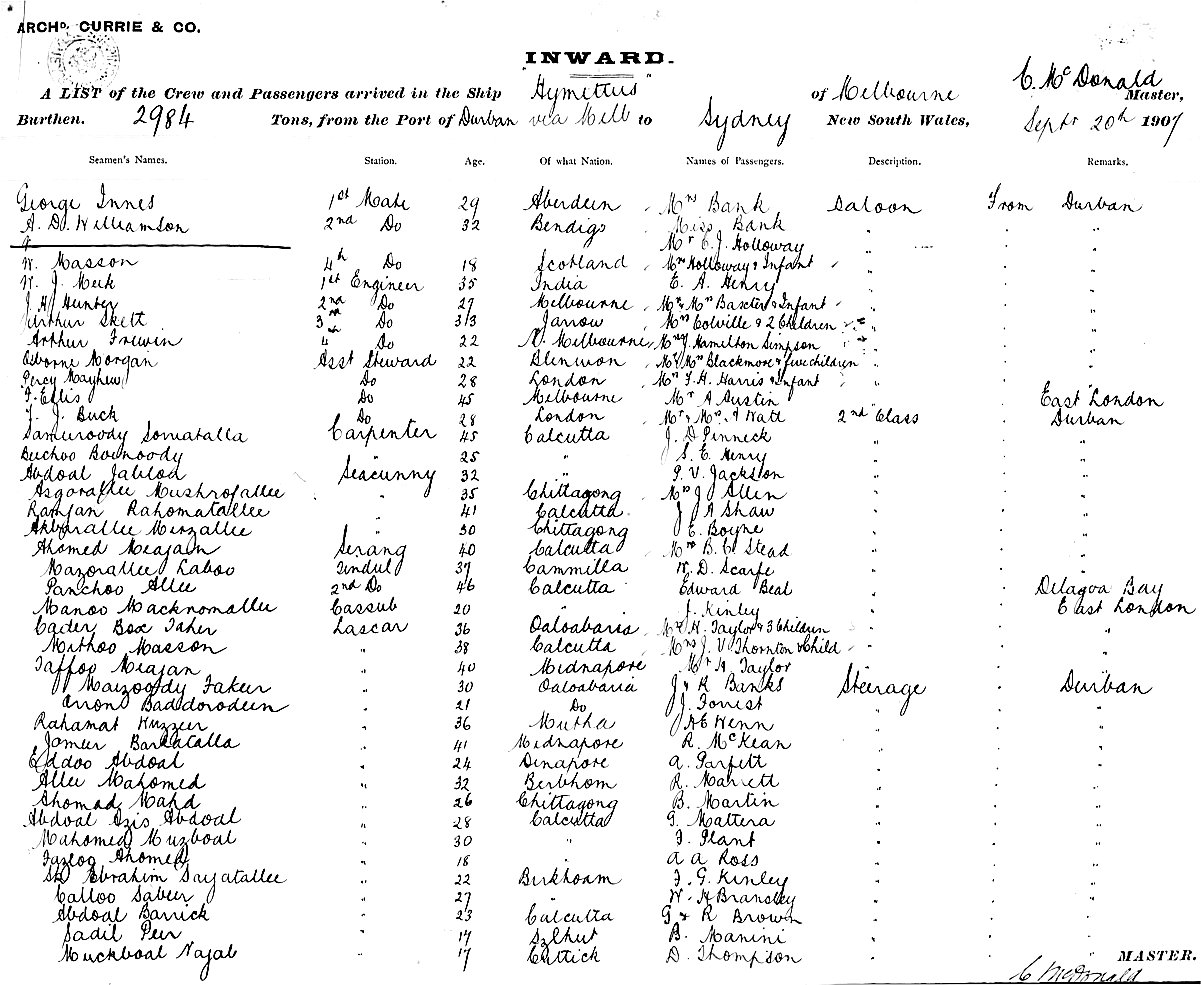 ARCHD. CURRIE & CO.
INWARD.
A LIST of the Crew and Passengers arrived in the Ship Hymettus of Melbourne C. McDonald Master,
Burthen. 2984 Tons, from the Port of Durban via Melb to Sydney New South Wales, Septr 20th 1907
Seamen's Names. Station. Age. Of what Nation. Names of Passengers. Description. Remarks.
George Innes 1st Mate 29 Aberdeen Mrs Bank Saloon From Durban
A. D. Williamson 2nd Do 32 Bendigo Miss Bank " "
Mr E. J. Holloway " "
W. Masson 4th Do 18 Scotland Mrs Holloway & Infant " "
W. J. Meek 1st Engineer 35 India E. A. Henry " "
J. H. Hunter 2nd Do 27 Melbourne Mr & Mrs Baxter & Infant " "
Arthur Skett 3rd Do 33 Jarrow Mrs Colville & 2 Children " "
Arthur Frewin 4 Do 22 N. Melbourne Hamilton Simpson " "
Osborne Morgan Asst Steward 22 Mr & Mrs Blackmore & five children "
Percy Mayhew Do 28 London Mrs F. H. Harris & Infant " "
F. Ellis Do 45 Melbourne Mr A Austin " East London
F. J. Buck Do 28 London Mr & Mrs Watt 2nd Class Durban
Samuroody Somatalla Carpenter 45 Calcutta J. D Pinneck " "
Buchoo 25 " S. E. Henry " "
Abdoal Seacunny 32 P. V. Jackson " "
Asgorallee Mushrofallee " 35 Chittagong Mrs J. Allen " "
Ramjan Rahomatallee " 41 Calcutta J A Shaw " "
Akborallee Mirzallee " 30 Chittagong E. Boyne " "
Ahomed Meajan Serang 40 Calcutta Mrs B. C. Stead " "
Mazorallee Laboo Tindul 37 Cammilla W. D. Scarfe " "
Panchoo Allee 2nd Do 46 Calcutta Edward Beal " Delagoa Bay
Manoo Macknomallee Cassub 20 " J. Kinley " East London
Cader Box Taher Lascar 36 Oaloabaria H. Taylor & 3 Children " "
Mithoo Masson " 38 Calcutta Mrs J. V. Thornton & Child " "
Taffoo Meajan " 40 Midnapore Mr H Taylor " "
Maizooddy Fakir " 30 Oaloabaria J & R Banks Steerage Durban
Baddorodeen " 21 Do J. Forrest " "
Rahamat Huzzeer " 36 Mutha A E Wenn " "
Jameer Barkatalla " 41 Midnapore R. McKean " "
Eddoo Abdoal " 24 Dinapore A. Garfett " "
Allee Mahomed " 32 Birbhom R. Marrett " "
Ahomad Mahd " 26 Chittagong B. Martin " "
Abdoal Azis Abdoal " 28 Calcutta G. Mattera " "
Mahomed Muzboal " 30 " F. Plant " "
Fazloo Ahomed " 18 A A Ross " "
Sk Ebrahim Sayatallee " 22 Birkhoam F. G. Kinley " "
Calloo Sabeer " 27 " W. H Bransley " "
Abdoal Barrick " 23 Calcutta G & R Brown " "
Sadil Peer " 17 Sylhut B. Manini " "
Muckboal Najab " 17 Cuttick D. Thompson " " MASTER.
C McDonald